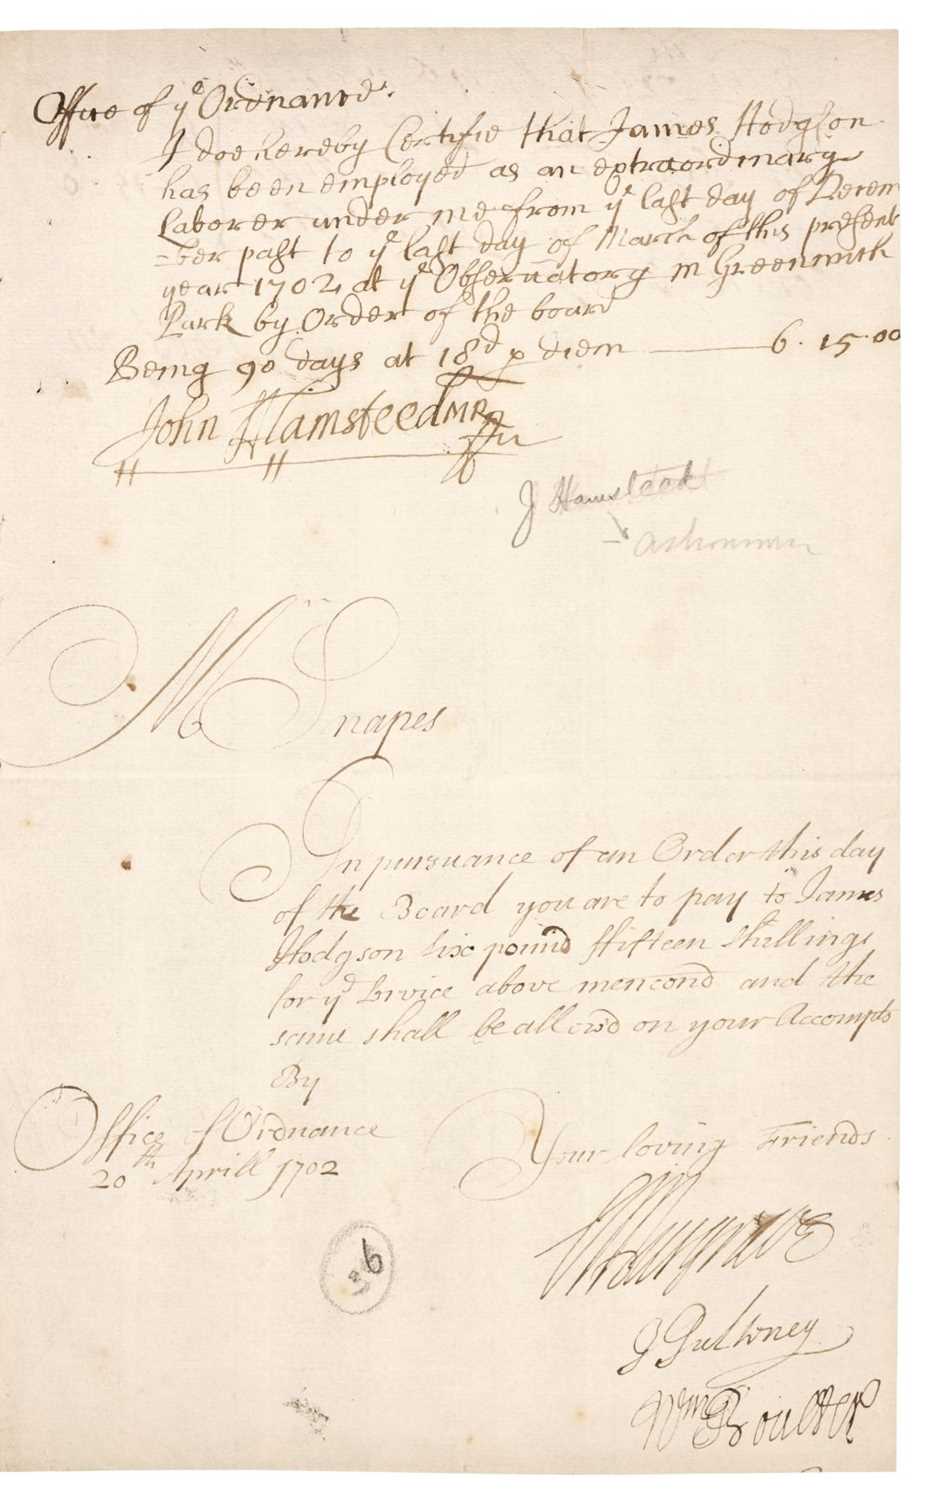 Office of yᵉ Ordnance.
I doe hereby Certifie that James Hodgson
has been employed as an extraordinary
Laborer under me from yᵉ last day of Decem
=ber past to yᵉ last day of March of this present
year 1702 at yᵉ Observatory in Greenwich
Park by Order of the board
Being 90 days at 18ᵈ p diem 6. 15. 00
John Flamsteed MR
J Flamsteed
- astronomer
Mʳ Snapes
In pursuance of an Order this day
of the Board you are to pay to James
Hodgson six pound ffifteen shillings
for yᵉ service above mencond and the
same shall be allow'd on your Accompts
By
Office of Ordnance
20ᵗʰ Aprill 1702
Your loving Friends
Musgrave
J Pulteney
Wm Boulter
36